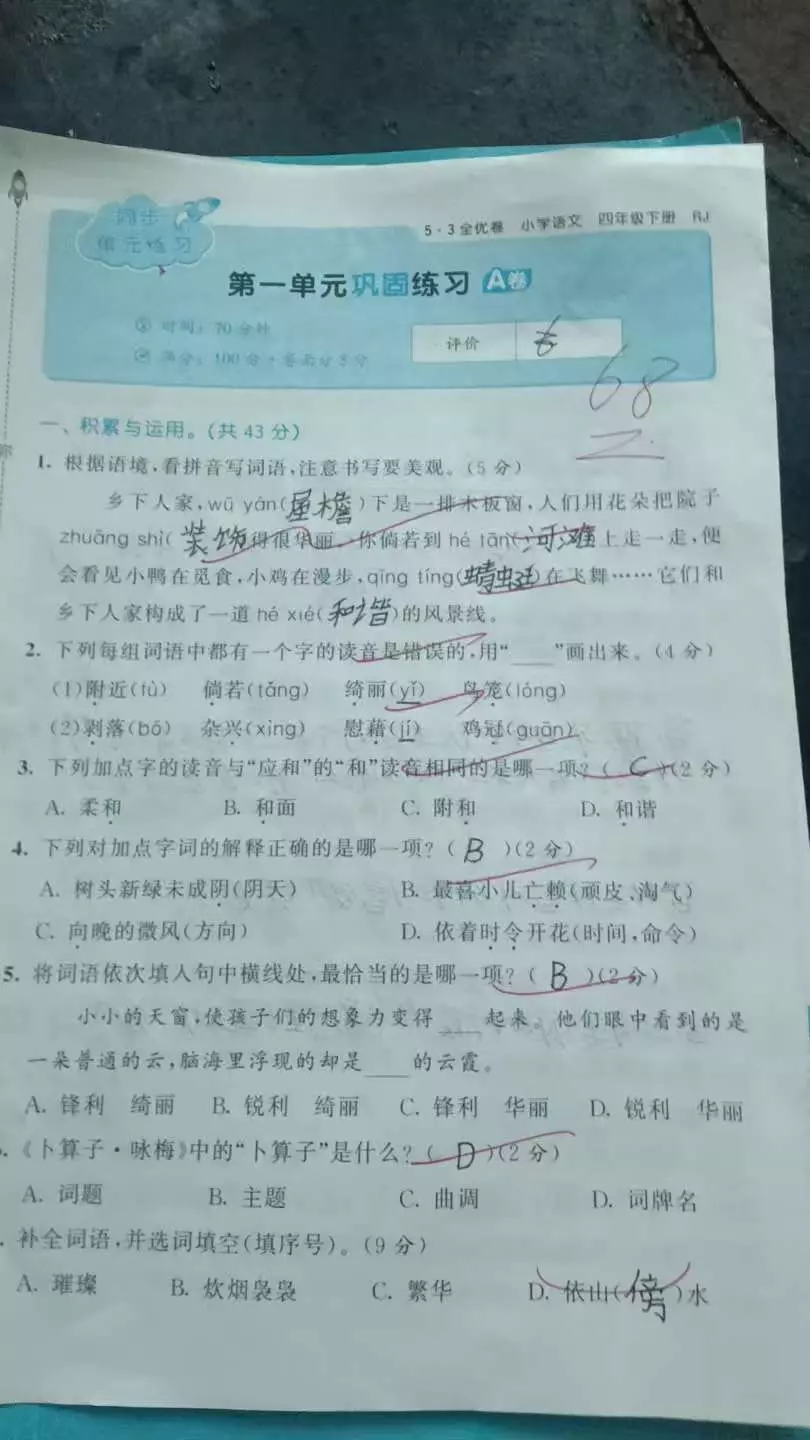 同步
单元练习
5·3全优卷 小学语文 四年级下册 RJ
第一单元巩固练习 A卷
时间:70分钟
满分:100分+卷面分5分
评价
68
一、积累与运用。(共43分)
1. 根据语境,看拼音写词语,注意书写要美观。(5分)
乡下人家,wū yán(屋檐)下是一排木板窗,人们用花朵把院子
zhuāng shì(装饰得很华丽。你倘若到 hé tān(河滩上走一走,便
会看见小鸭在觅食,小鸡在漫步,qīng tíng(蜻蜓)在飞舞……它们和
乡下人家构成了一道 hé xié(和谐)的风景线。
2. 下列每组词语中都有一个字的读音是错误的,用“___”画出来。(4分)
(1)附近(fù) 倘若(tǎng) 绮丽(yǐ) 鸟笼(lóng)
(2)剥落(bō) 杂兴(xìng) 慰藉(jí) 鸡冠(guān)
3. 下列加点字的读音与“应和”的“和”读音相同的是哪一项?( C )(2分)
A. 柔和 B. 和面 C. 附和 D. 和谐
4. 下列对加点字词的解释正确的是哪一项?( B )(2分)
A. 树头新绿未成阴(阴天) B. 最喜小儿亡赖(顽皮、淘气)
C. 向晚的微风(方向) D. 依着时令开花(时间,命令)
5. 将词语依次填入句中横线处,最恰当的是哪一项?( B )(2分)
小小的天窗,使孩子们的想象力变得___起来。他们眼中看到的是
一朵普通的云,脑海里浮现的却是___的云霞。
A. 锋利 绮丽 B. 锐利 绮丽 C. 锋利 华丽 D. 锐利 华丽
.《卜算子·咏梅》中的“卜算子”是什么?( D )(2分)
A. 词题 B. 主题 C. 曲调 D. 词牌名
. 补全词语,并选词填空(填序号)。(9分)
A. 璀璨 B. 炊烟袅袅 C. 繁华 D. 依山(傍)水